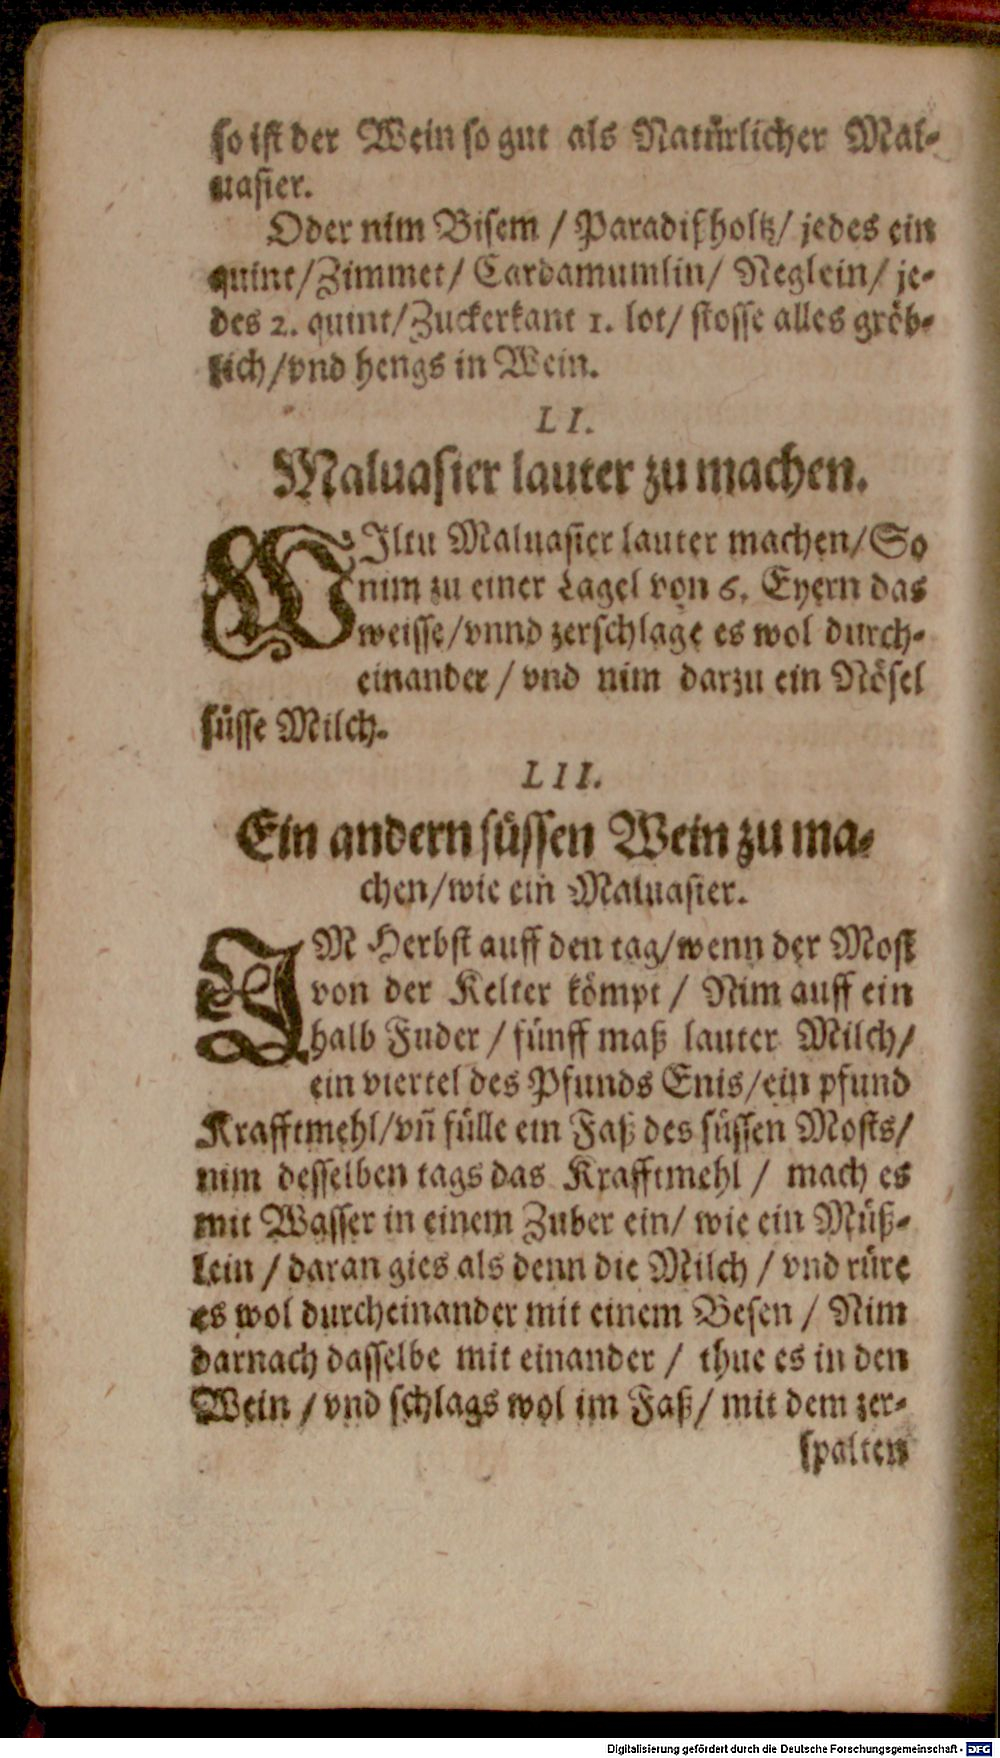 so ist der Wein so gut als Natürlicher Mal-
uasier.
Oder nim Bisem / Paradißholtz/ jedes ein
quint/Zimmet/ Cardamumlin/ Neglein/ je-
des 2. quint/Zuckerkant 1. lot/ stosse alles gröb-
lich/vnd hengs in Wein.
LI.
Maluasier lauter zu machen.
WIltu Maluasier lauter machen/So
nim zu einer Lagel von 6. Eyern das
weisse/vnnd zerschlage es wol durch-
einander / vnd nim darzu ein Nösel
süsse Milch.
LII.
Ein andern süssen Wein zu ma-
chen/wie ein Maluasier.
IM Herbst auff den tag/wenn der Most
von der Kelter kömpt / Nim auff ein
halb Fuder / fünff maß lauter Milch/
ein viertel des Pfunds Enis/ein pfund
Krafftmehl/vñ fülle ein Faß des süssen Mosts/
nim desselben tags das Krafftmehl / mach es
mit Wasser in einem Zuber ein/ wie ein Müß-
lein / daran gies als denn die Milch / vnd rüre
es wol durcheinander mit einem Besen / Nim
darnach dasselbe mit einander / thue es in den
Wein / vnd schlags wol im Faß/ mit dem zer-
spalten
Digitalisierung gefördert durch die Deutsche Forschungsgemeinschaft - DFG